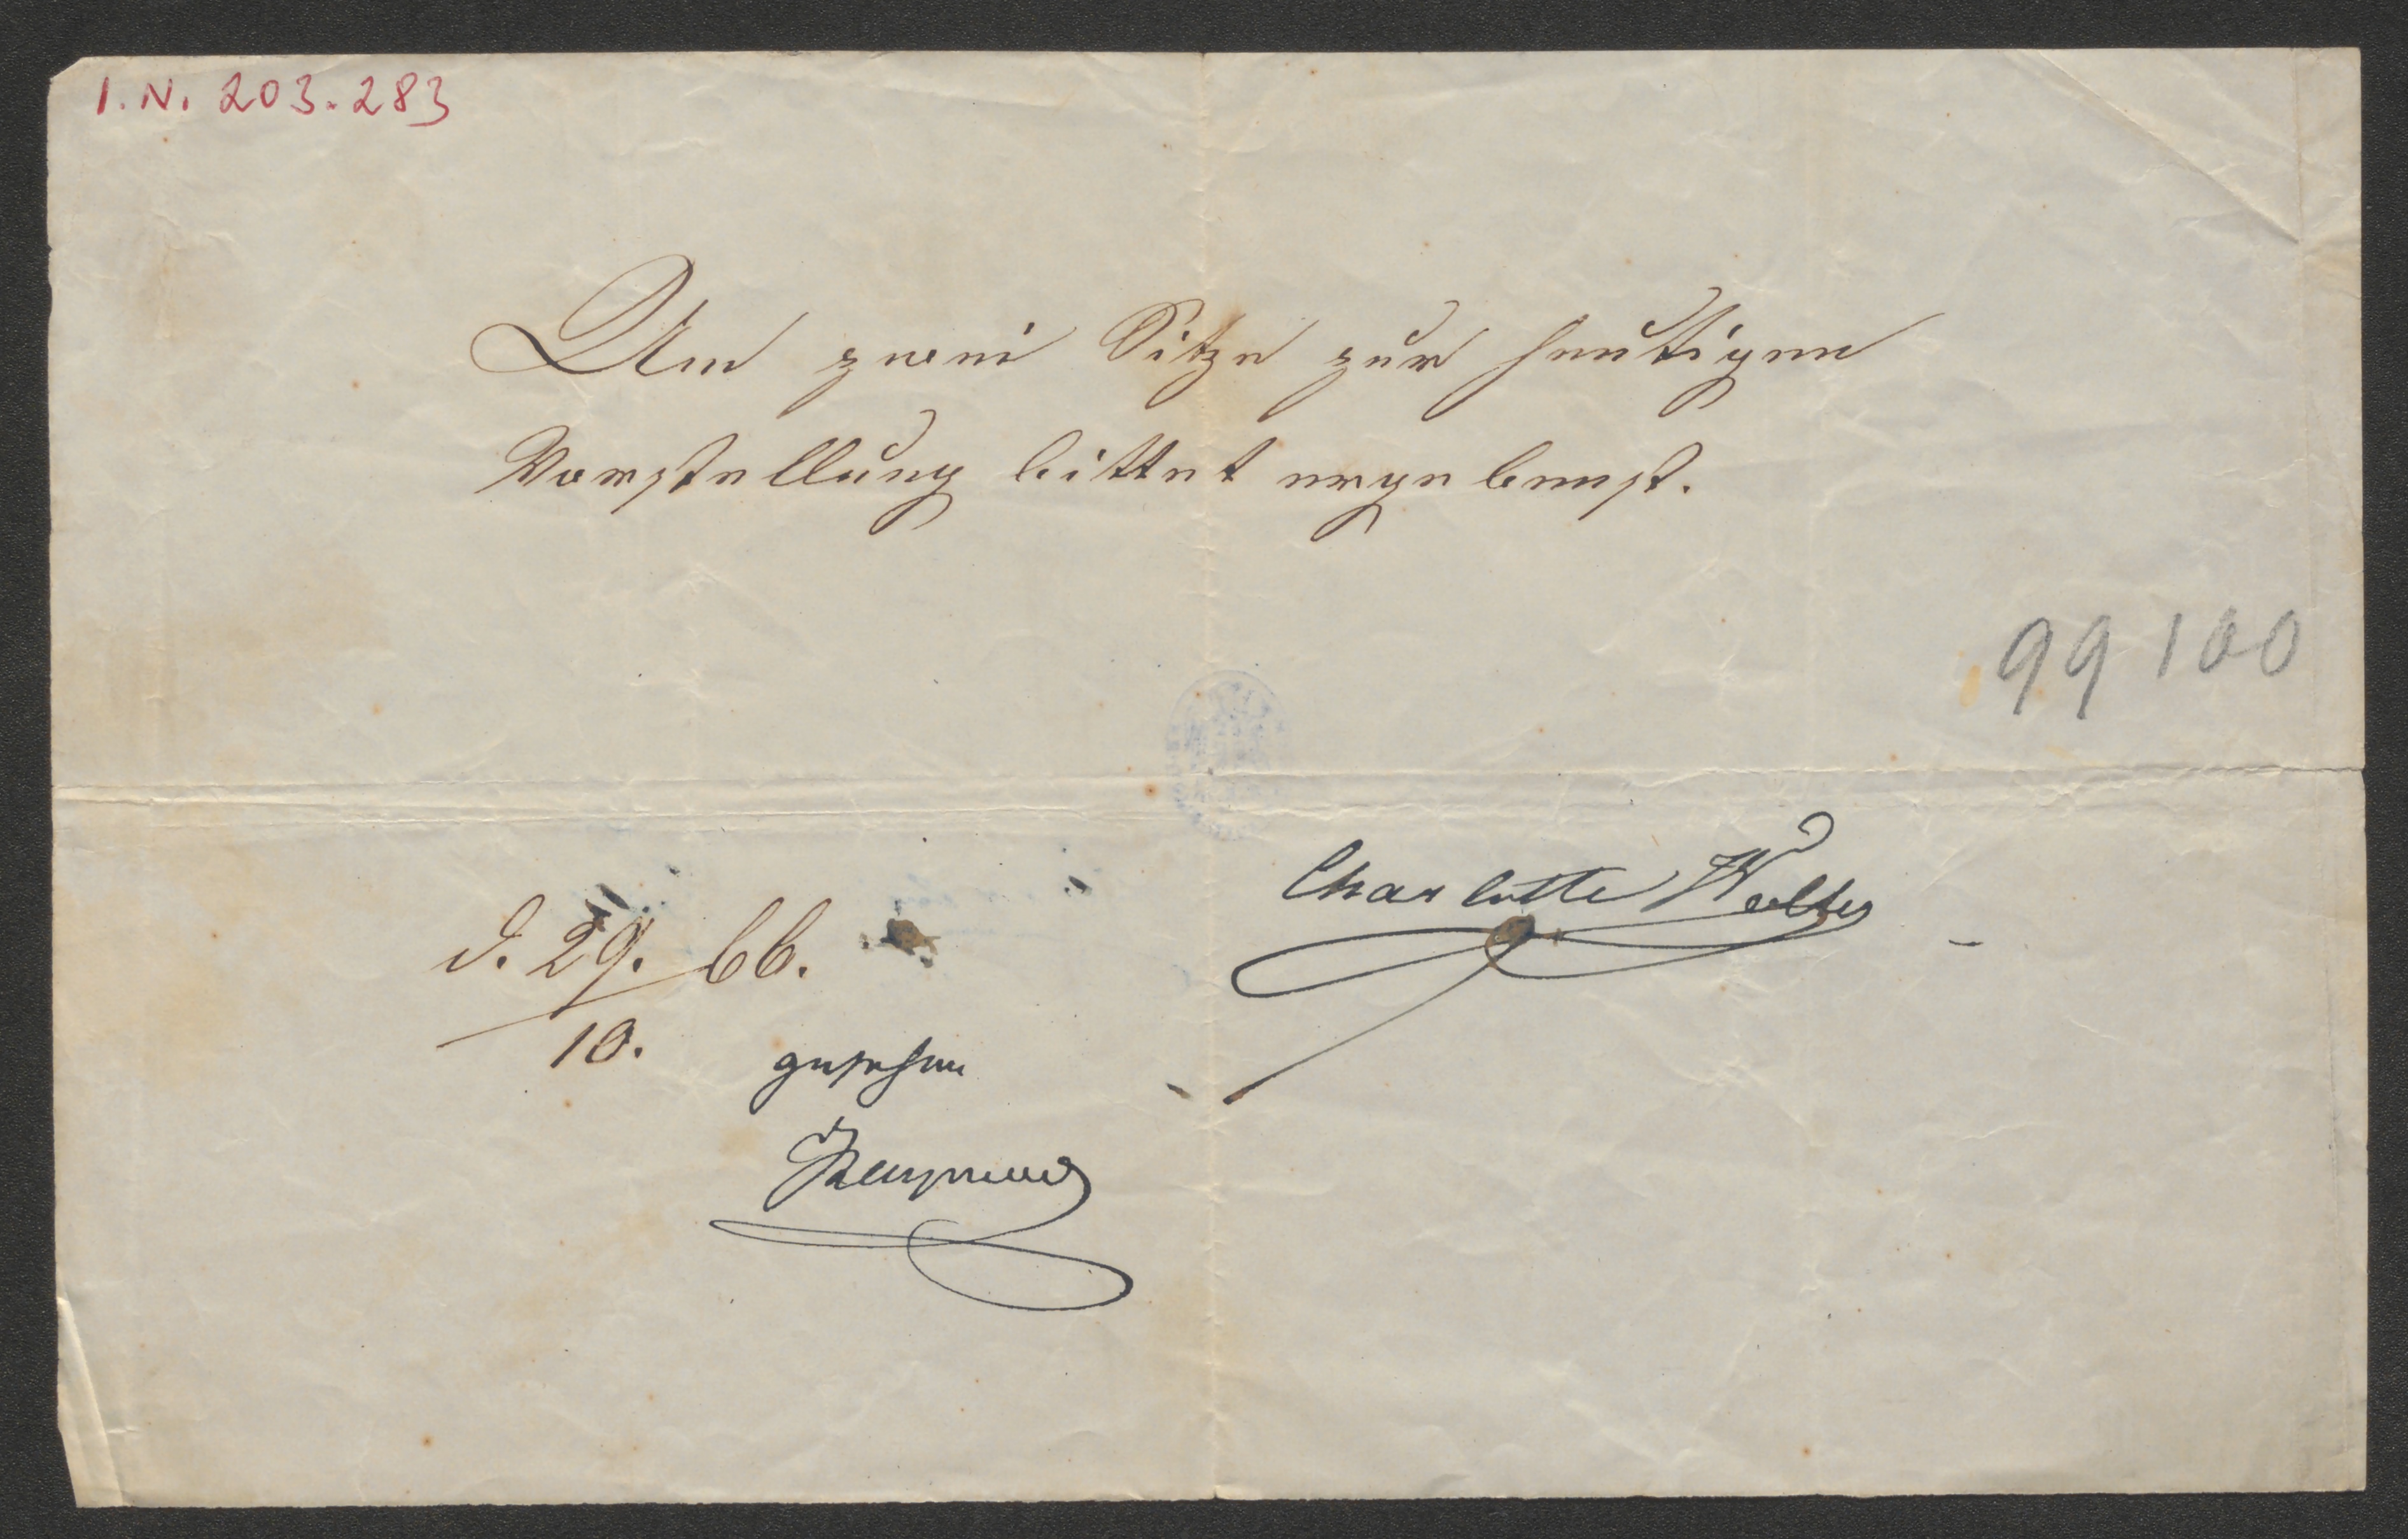 I. N. 203.283
Um zwei Sitze zur heutigen
Vorstellung bittet ergebenst.
99 100
Charlotte Wolter
d. 29. 66.
10.
gesehen